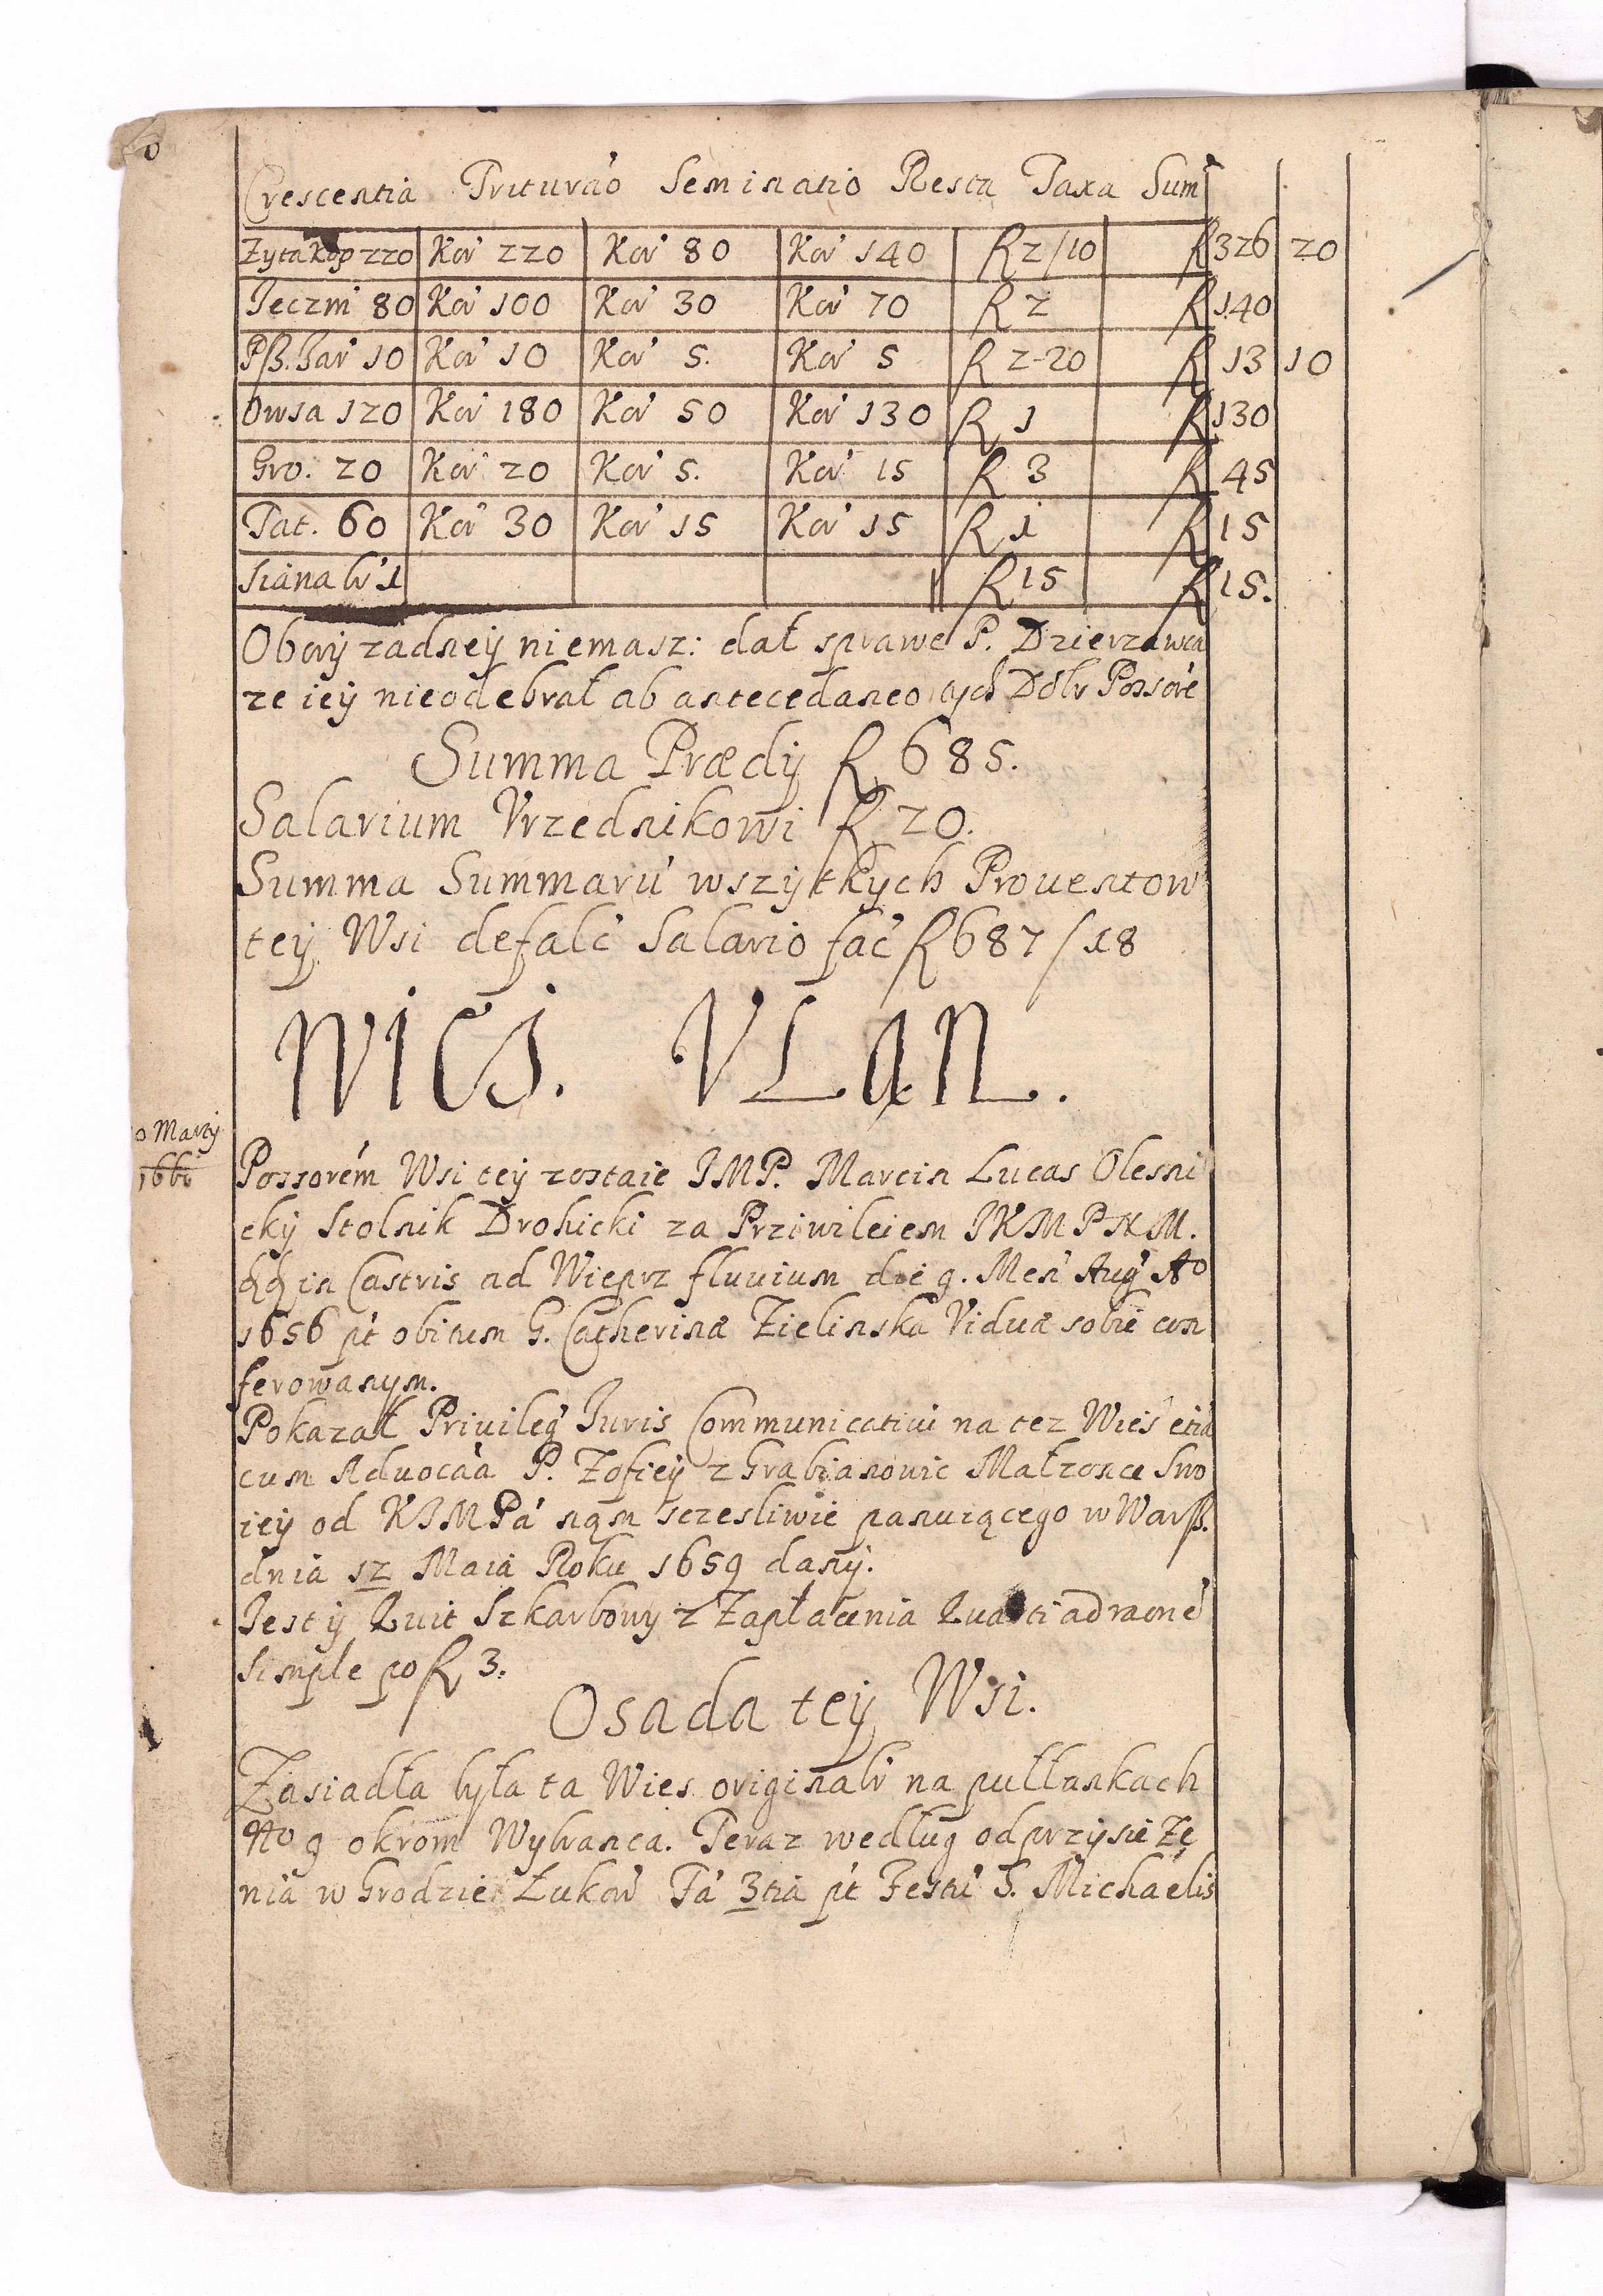 Crescentia Triturao Seminatio Resta Taxa Sum
Zyta Kop 220 Kor 220 Kor 80 Kor 140 R 2/10 R 326 20
Jeczm 80 Kor 100 Kor 30 Kor 70 R 2 R 140
Pß. Jar 10 Kor 10 Kor 5. Kor 5 R 2-20 R 13 10
Owsa 120 Kor 180 Kor 50 Kor 130 R 1 R 130
Gro. 20 Kor 20 Kor 5. Kor 15 R 3 R 45
Tat. 60 Kor 30 Kor 15 Kor 15 R 1 R 15
Siana br 1 R 15 R 15.
Obory zadney niemasz: dał sprawe P. Dzierzawca
ze iey nieodebrał ab antecedaneo tych Dobr Possore
Summa Prædij R 685.
Salarium Vrzednikowi R 20.
Summa Summarū wszytkych Prouentow
tey Wsi defalc Salario fac R 687/18
WIES. VLAN.
0 Martij
1661
Possorém Wsi tey zostaie JMP. Marcin Lucas Olesni
cky Stolnik Drohicki za Prziwileiem JKMPNM.
in Castris ad Wieprz fluuium die 9. Men Aug Ao
1656 pt obitum G. Catherinæ Zielinska Viduæ sobie con
ferowanym.
Pokazał Priuileg Iuris Communicatiui na tez Wies etia
cum Aduocáa P. Zofiey z Grabianowic Małzonce Swo
iey od KJMPá nąm sczesliwie panuiącego w Warß.
dnia 12 Maia Roku 1659 dany.
Jest y Quit Szkarbowy z Zapłacenia Quarti ad raone
simple po R 3.
Osada tey Wsi.
Zasiadła była ta Wies originalr na pułłankach
No 9 okrom Wybranca. Teraz według odprzysięzę
nia w Grodzie Łukow Fá 3tia pt Festū S. Michaelis